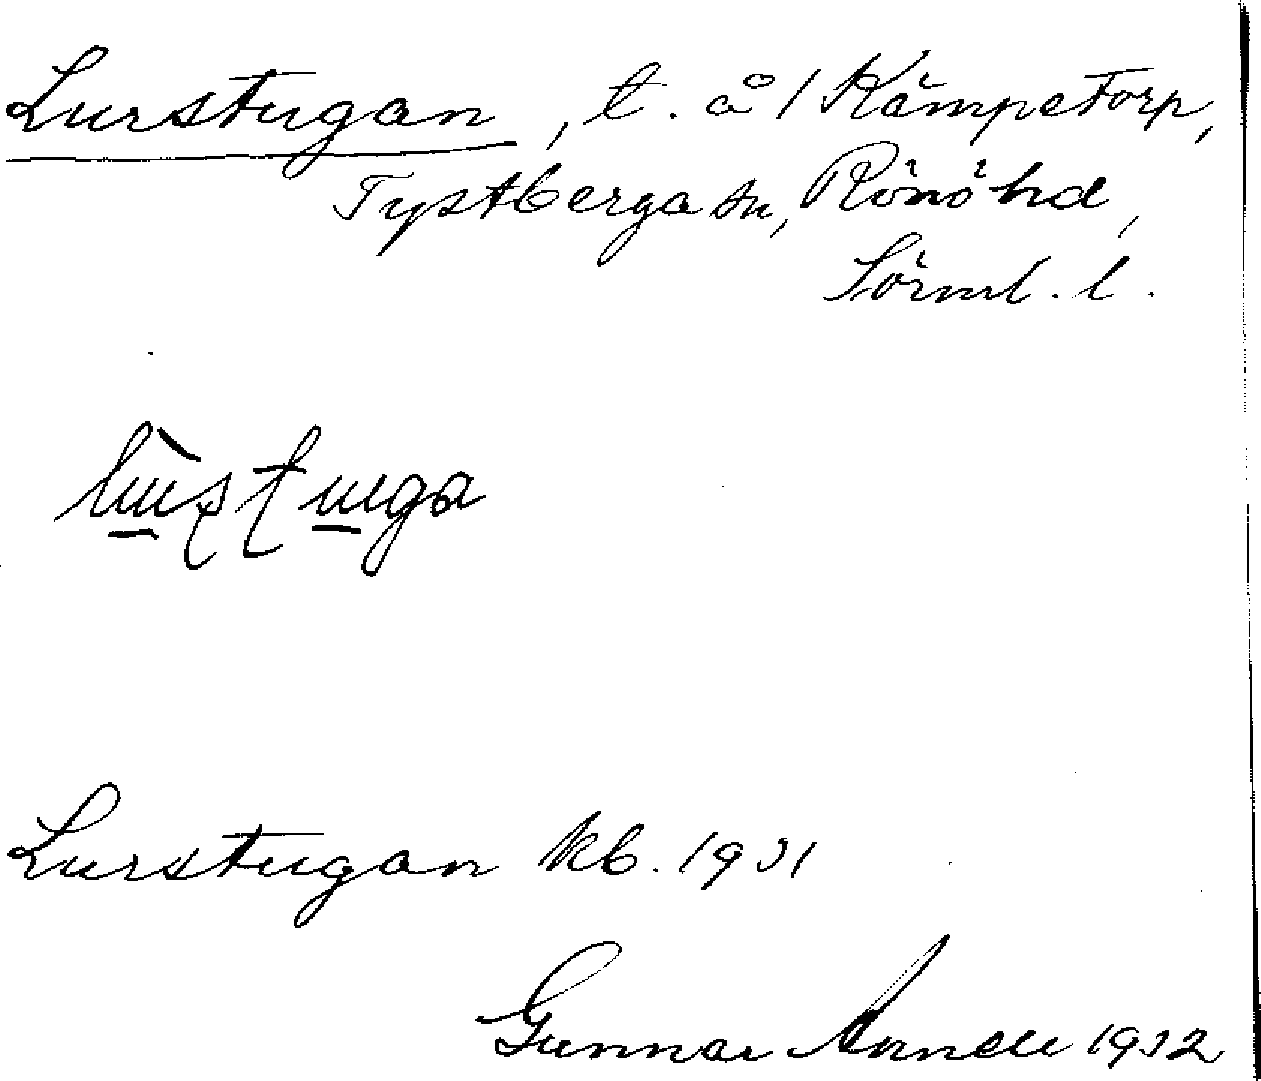 Lurstugan, t. å / Kämpetorp,
Tystberga sn, Rönö hd,
Sörml. l.
Lurstugan kb. 1931
Gunnar 1932